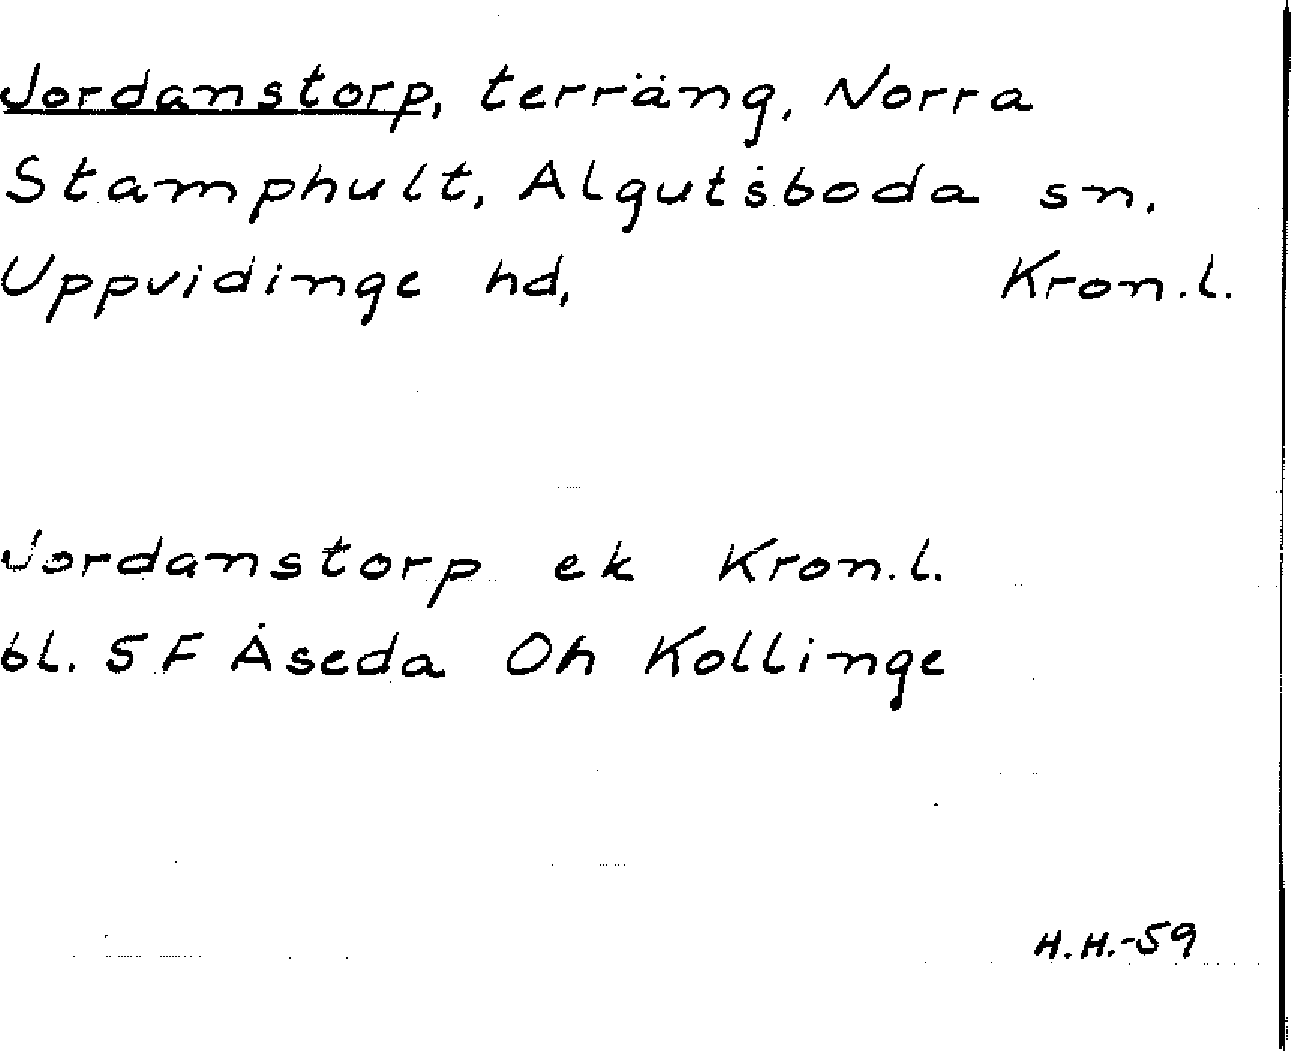 Jordanstorp, terräng, Norra
Stamphult, Algutsboda sn.
Uppvidinge hd, Kron.l.
Jordanstorp ek Kron.l.
bl. 5F Åseda Oh Kollinge
H.H.-59